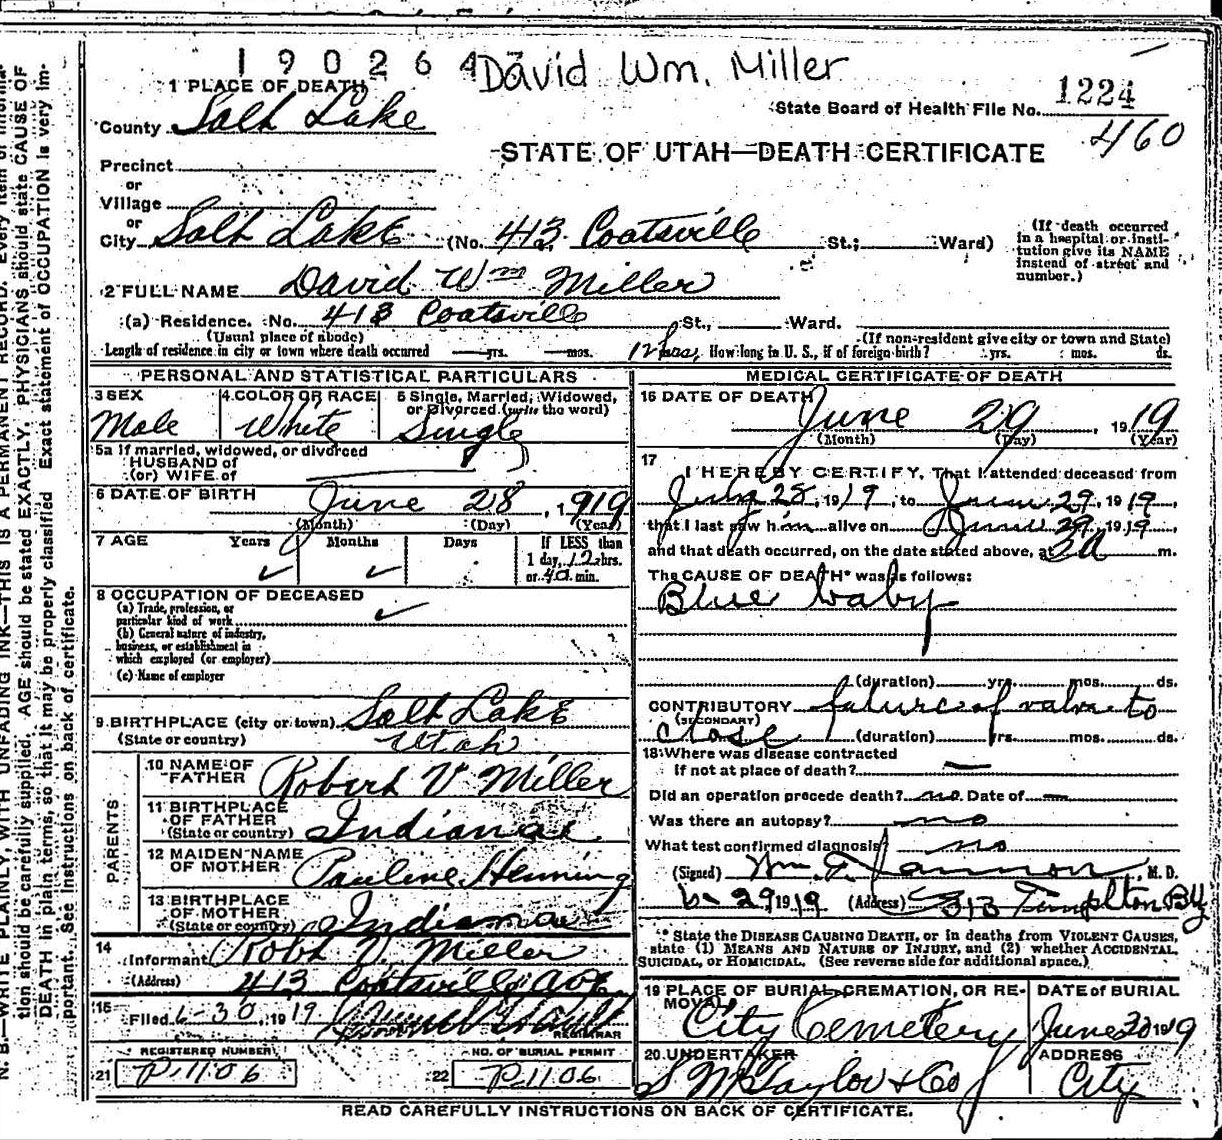 190264 David Wm. Miller
1 PLACE OF DEATH
State Board of Health File No. 1224
County Salt Lake
460
STATE OF UTAH—DEATH CERTIFICATE
Precinct
or
Village
or
City Salt Lake (No. 413 Coatsville St.; Ward)
(If death occurred in a hospital or insti-
tution give its NAME
instead of street and
number.)
2 FULL NAME David Wm Miller
(a) Residence. No. 413 Coatsville St., Ward.
(Usual place of abode) (If non-resident give city or town and State)
Length of residence in city or town where death occurred yrs. mos. 12 hrs. How long in U. S., if of foreign birth? yrs. mos. ds.
PERSONAL AND STATISTICAL PARTICULARS
3 SEX Male
4 COLOR OR RACE White
5 Single, Married, Widowed,
or Divorced (write the word)
Single
5a If married, widowed, or divorced
HUSBAND of
(or) WIFE of
6 DATE OF BIRTH June 28, 1919
(Month) (Day) (Year)
7 AGE Years Months Days If LESS than
1 day, 12 hrs.
or 40 min.
8 OCCUPATION OF DECEASED
(a) Trade, profession, or
particular kind of work
(b) General nature of industry,
business, or establishment in
which employed (or employer)
(c) Name of employer
9 BIRTHPLACE (city or town) Salt Lake
(State or country) Utah
PARENTS
10 NAME OF
FATHER Robert V Miller
11 BIRTHPLACE
OF FATHER
(State or country) Indiana
12 MAIDEN NAME
OF MOTHER Pauline Heming
13 BIRTHPLACE
OF MOTHER
(State or country) Indiana
14
Informant Robt V. Miller
(Address) 413 Coatsville Ave
15
Filed 6-30, 1919
REGISTRAR
REGISTERED NUMBER
21 P.1106
NO. OF BURIAL PERMIT
22 P.1106
MEDICAL CERTIFICATE OF DEATH
16 DATE OF DEATH June 29, 1919
(Month) (Day) (Year)
17
I HEREBY CERTIFY, That I attended deceased from
July 28, 1919, to June 29, 1919
that I last saw him alive on June 29, 1919
and that death occurred, on the date stated above, at 3a m.
The CAUSE OF DEATH* was as follows:
Blue baby
(duration) yrs. mos. ds.
CONTRIBUTORY failure of valve to
(SECONDARY)
close (duration) yrs. mos. ds.
18 Where was disease contracted
if not at place of death? —
Did an operation precede death? no Date of —
Was there an autopsy? no
What test confirmed diagnosis? no
(Signed) Wm. F. M. D.
6-29 1919 (Address) 313 Templton Bldg
* State the DISEASE CAUSING DEATH, or in deaths from VIOLENT CAUSES,
state (1) MEANS AND NATURE OF INJURY, and (2) whether ACCIDENTAL,
SUICIDAL, or HOMICIDAL. (See reverse side for additional space.)
19 PLACE OF BURIAL, CREMATION, OR RE-
MOVAL
City Cemetery
DATE of BURIAL
June 30 1919
20 UNDERTAKER
S M Taylor & Co
ADDRESS
City
READ CAREFULLY INSTRUCTIONS ON BACK OF CERTIFICATE.
N. B.—WRITE PLAINLY, WITH UNFADING INK—THIS IS A PERMANENT RECORD. Every item of informa-
tion should be carefully supplied. AGE should be stated EXACTLY. PHYSICIANS should state CAUSE OF
DEATH in plain terms, so that it may be properly classified. Exact statement of OCCUPATION is very im-
portant. See instructions on back of certificate.